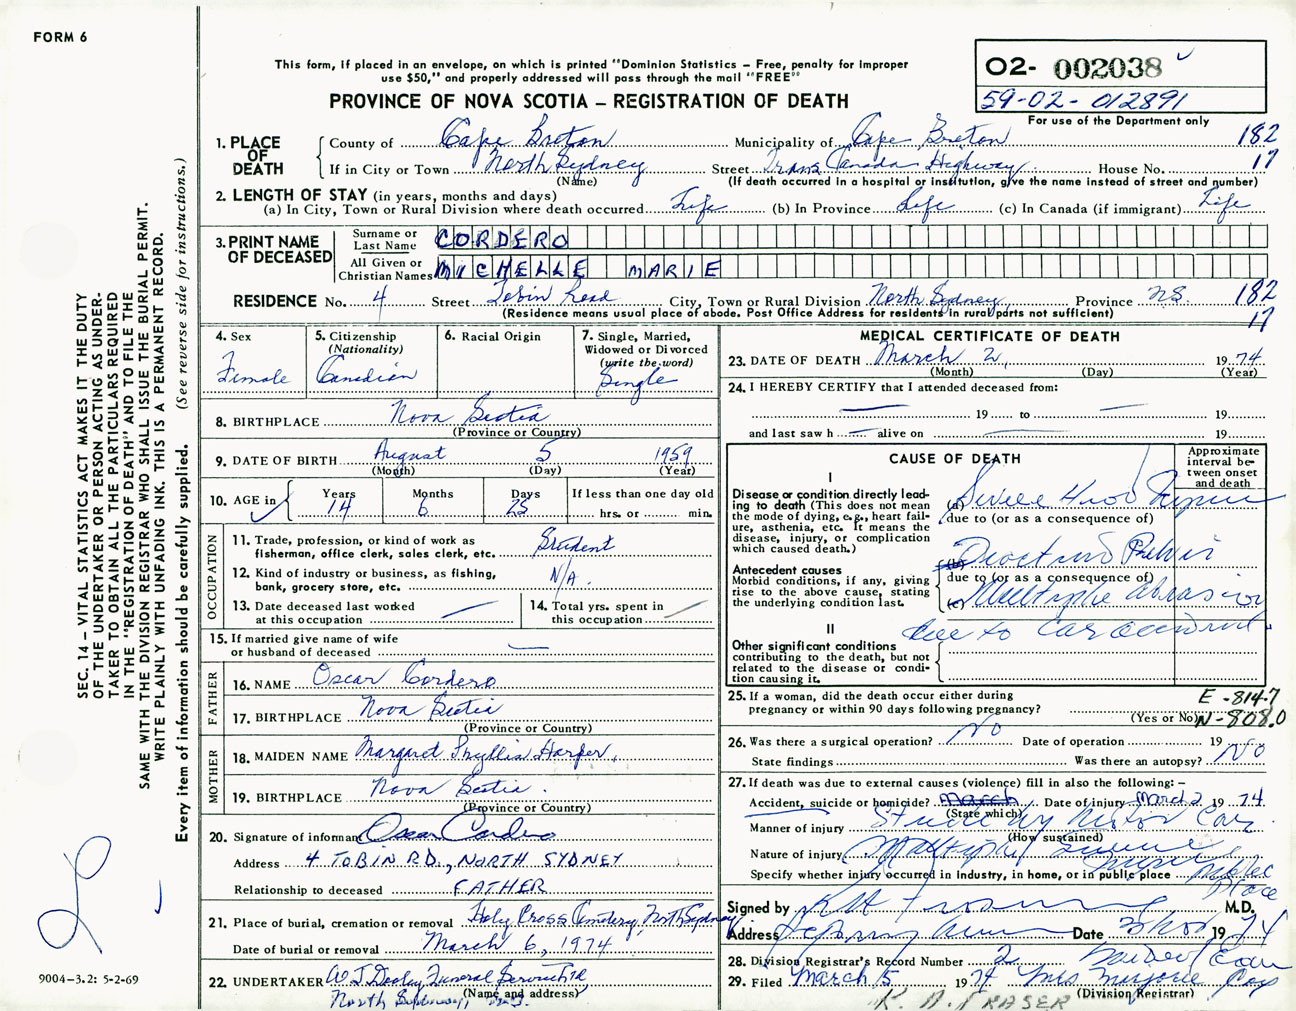 FORM 6
This form, if placed in an envelope, on which is printed "Dominion Statistics - Free, penalty for improper
use $50," and properly addressed will pass through the mail "FREE"
PROVINCE OF NOVA SCOTIA - REGISTRATION OF DEATH
02- 002038
59-02-012891
For use of the Department only
182
17
1. PLACE OF DEATH
County of Cape Breton Municipality of Cape Breton
If in City or Town North Sydney Street Trans Canada Highway House No.
(Name) (If death occurred in a hospital or institution, give the name instead of street and number)
2. LENGTH OF STAY (in years, months and days)
(a) In City, Town or Rural Division where death occurred Life (b) In Province Life (c) In Canada (if immigrant) Life
3. PRINT NAME OF DECEASED
Surname or Last Name CORDERO
All Given or Christian Names MICHELLE MARIE
RESIDENCE No. 4 Street Tobin Road City, Town or Rural Division North Sydney Province NS 182
(Residence means usual place of abode. Post Office Address for residents in rural parts not sufficient) 17
4. Sex Female
5. Citizenship (Nationality) Canadian
6. Racial Origin
7. Single, Married, Widowed or Divorced (write the word) Single
8. BIRTHPLACE Nova Scotia
(Province or Country)
9. DATE OF BIRTH August 5 1959
(Month) (Day) (Year)
10. AGE in Years 14 Months 6 Days 25 If less than one day old hrs. or min.
OCCUPATION
11. Trade, profession, or kind of work as fisherman, office clerk, sales clerk, etc. Student
12. Kind of industry or business, as fishing, bank, grocery store, etc. N/A.
13. Date deceased last worked at this occupation
14. Total yrs. spent in this occupation
15. If married give name of wife or husband of deceased
FATHER
16. NAME Oscar Cordero
17. BIRTHPLACE Nova Scotia
(Province or Country)
MOTHER
18. MAIDEN NAME Margaret Phyllis Harper
19. BIRTHPLACE Nova Scotia
(Province or Country)
20. Signature of informant Oscar Cordero
Address 4 TOBIN RD., NORTH SYDNEY
Relationship to deceased FATHER
21. Place of burial, cremation or removal Holy Cross Cemetery, North Sydney
Date of burial or removal March 6, 1974
22. UNDERTAKER W. J. Dooley Funeral Service Ltd
(Name and address)
North Sydney, N.S.
MEDICAL CERTIFICATE OF DEATH
23. DATE OF DEATH March 2, 1974
(Month) (Day) (Year)
24. I HEREBY CERTIFY that I attended deceased from:
19 to 19
and last saw h alive on 19
CAUSE OF DEATH
Approximate interval between onset and death
I
Disease or condition directly leading to death (This does not mean the mode of dying, e.g., heart failure, asthenia, etc. It means the disease, injury, or complication which caused death.)
(a) Severe Head Injuries
due to (or as a consequence of)
Antecedent causes
Morbid conditions, if any, giving rise to the above cause, stating the underlying condition last.
(b) Pelvis
due to (or as a consequence of)
(c) Multiple abrasions
due to Car accident
II
Other significant conditions contributing to the death, but not related to the disease or condition causing it.
25. If a woman, did the death occur either during pregnancy or within 90 days following pregnancy?
(Yes or No)
E-814.7
N-808.0
26. Was there a surgical operation? No Date of operation 19
State findings Was there an autopsy? No
27. If death was due to external causes (violence) fill in also the following:-
Accident, suicide or homicide? March Date of injury March 2 1974
(State which)
Manner of injury Struck by Motor Car
(How sustained)
Nature of injury Multiple severe injuries
Specify whether injury occurred in industry, in home, or in public place Public Place
Signed by M.D.
Address Date 1974
28. Division Registrar's Record Number 2
29. Filed March 5 1974 Mrs Marjorie
(Division Registrar)
K. A. FRASER
SEC. 14 - VITAL STATISTICS ACT MAKES IT THE DUTY
OF THE UNDERTAKER OR PERSON ACTING AS UNDER-
TAKER TO OBTAIN ALL THE PARTICULARS REQUIRED
IN THE "REGISTRATION OF DEATH" AND TO FILE THE
SAME WITH THE DIVISION REGISTRAR WHO SHALL ISSUE THE BURIAL PERMIT.
WRITE PLAINLY WITH UNFADING INK. THIS IS A PERMANENT RECORD.
Every item of information should be carefully supplied. (See reverse side for instructions.)
9004-3.2: 5-2-69